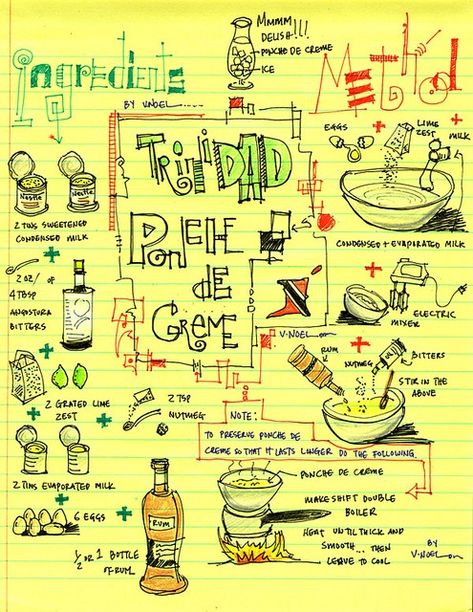 Ingredients
BY VNOEL......
MMMM
DELISH!!!
PONCHE DE CREME
ICE
Method
TRINIDAD
PONCHE
DE
CREME
V-NOEL
Nestle
Nestle
2 TINS SWEETENED
CONDENSED MILK
2 OZ/
4 TBSP
ANGOSTURA
BITTERS
2 GRATED LIME
ZEST
2 TSP
NUTMEG
2 TINS EVAPORATED MILK
6 EGGS
1/2 OR 1 BOTTLE
OF RUM
RUM
EGGS
LIME
ZEST
MILK
CONDENSED + EVAPORATED MILK
ELECTRIC
MIXER
RUM
NUTMEG
BITTERS
STIR IN THE
ABOVE
NOTE:
TO PRESERVE PONCHE DE
CREME SO THAT IT LASTS LINGER DO THE FOLLOWING.
PONCHE DE CREME
MAKESHIFT DOUBLE
BOILER
HEAT UNTIL THICK AND
SMOOTH... THEN
LEAVE TO COOL
BY
V-NOEL